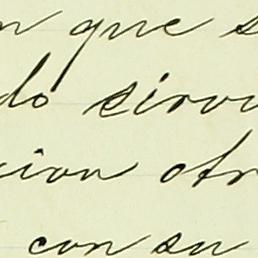 n que s
do sirvi
cion otr
con su